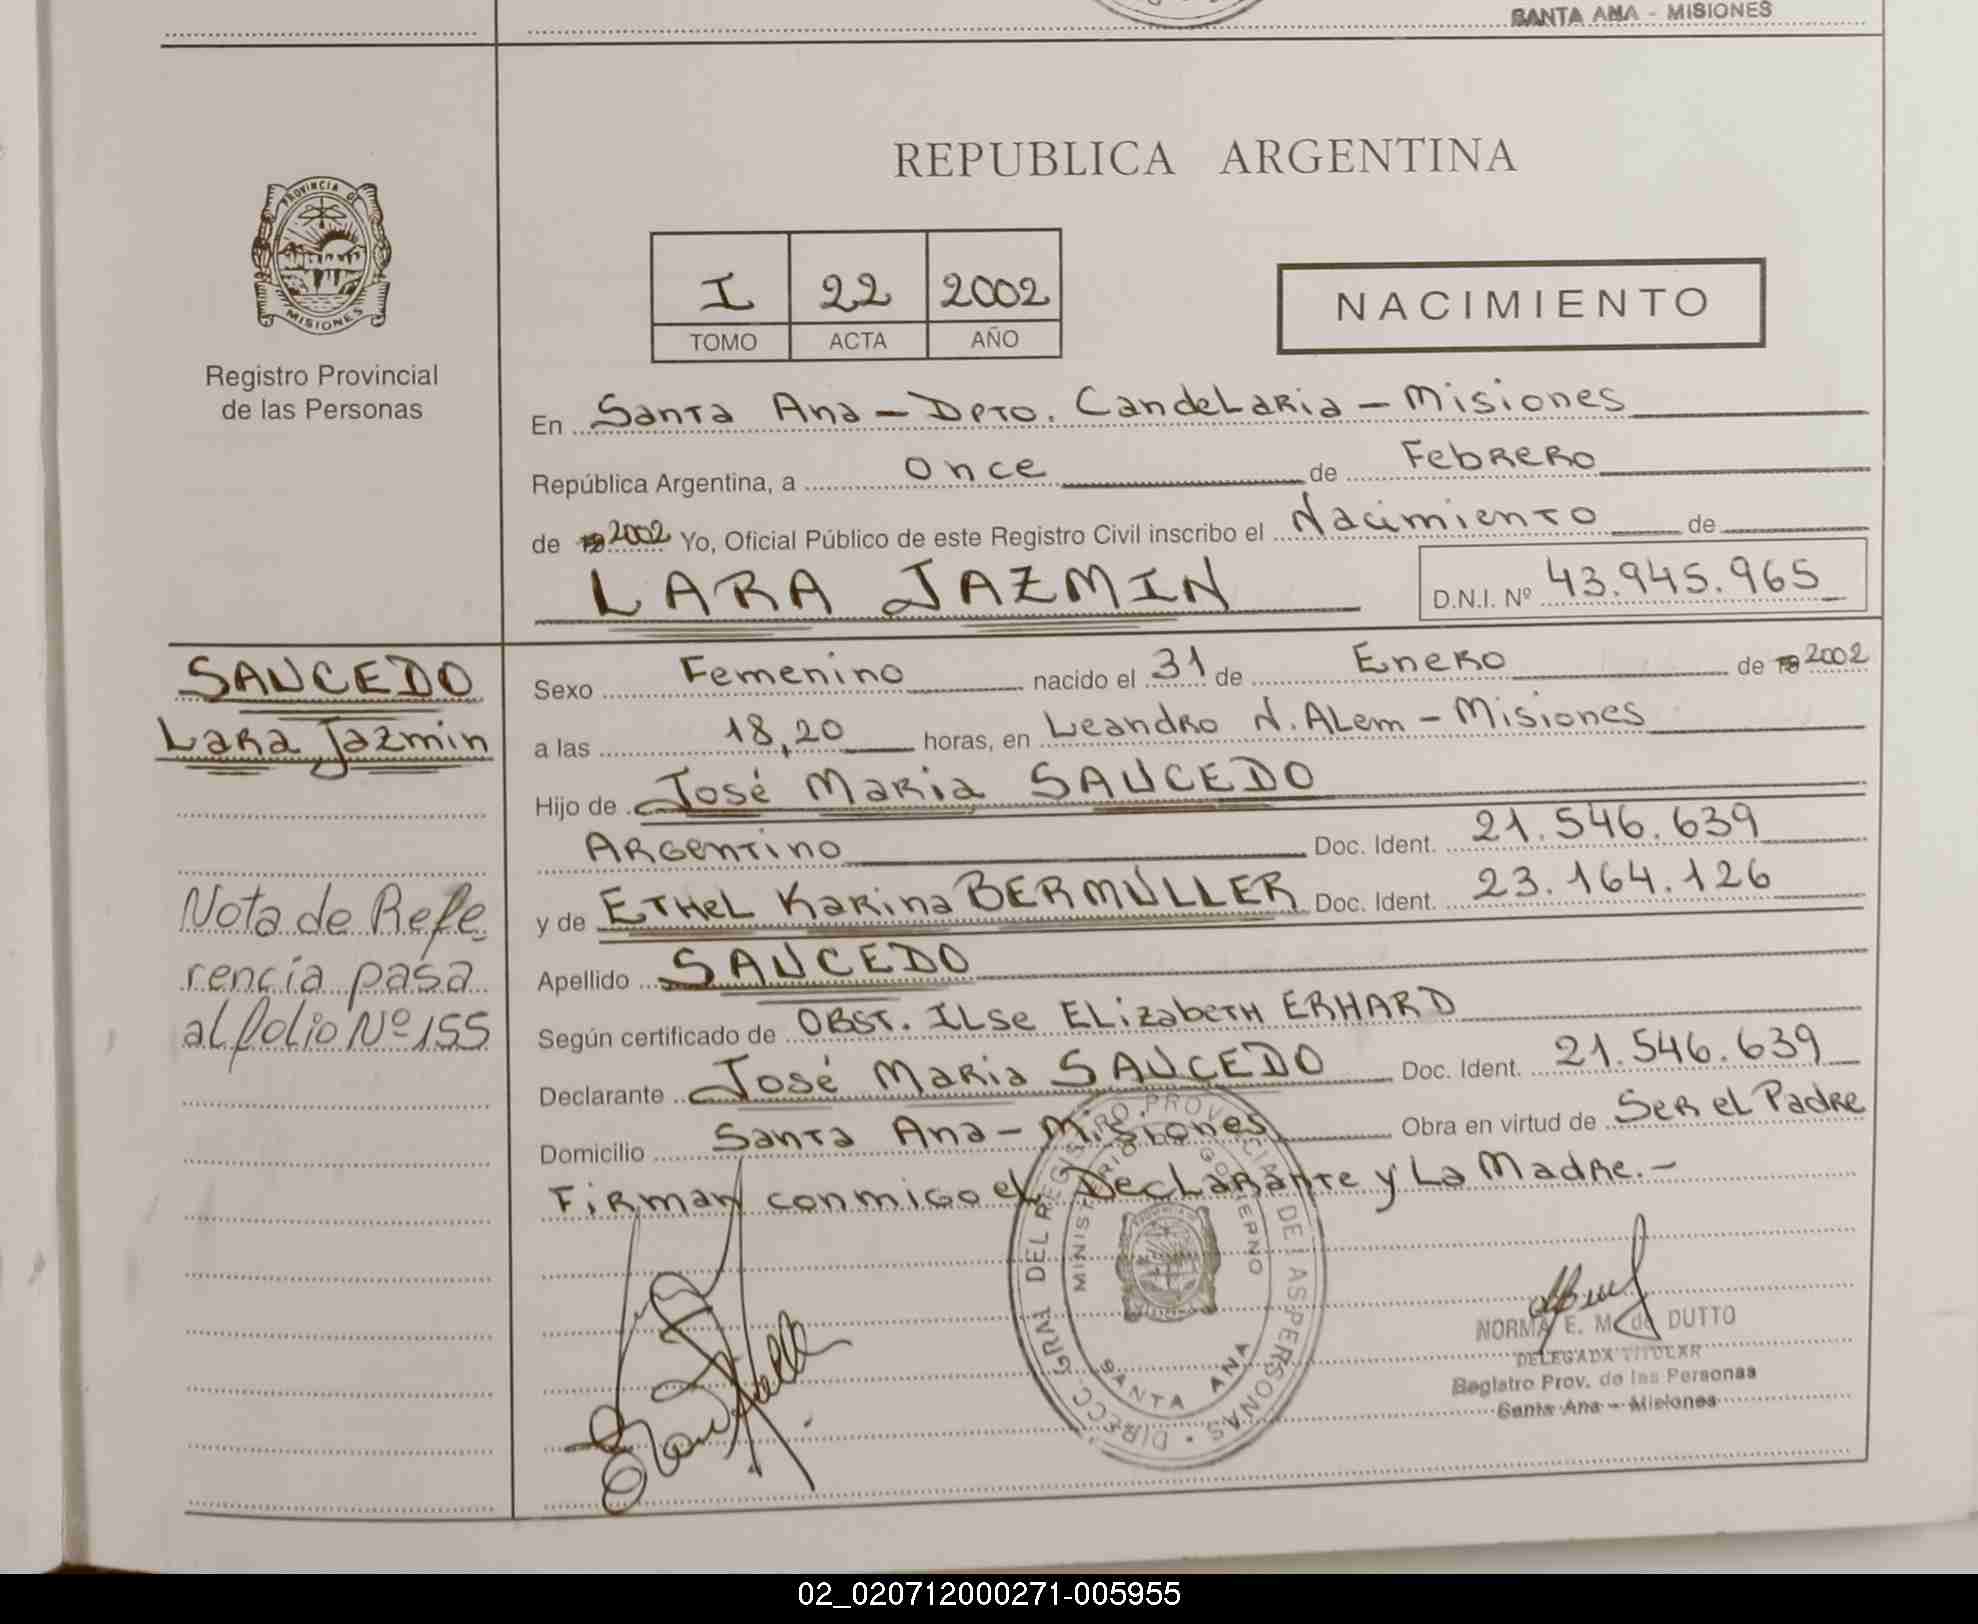 SANTA ANA - MISIONES
REPUBLICA ARGENTINA
PROVINCIA DE
MISIONES
Registro Provincial
de las Personas
I 22 2002
TOMO ACTA AÑO
NACIMIENTO
En Santa Ana - Dpto. Candelaria - Misiones
República Argentina, a once de Febrero
de 19 2002 Yo, Oficial Público de este Registro Civil inscribo el Nacimiento de
LARA JAZMIN D.N.I. Nº 43.945.965
SAUCEDO
Lara Jazmin
Nota de Refe
rencia pasa
al folio Nº 155
Sexo Femenino nacido el 31 de Enero de 19 2002
a las 18,20 horas, en Leandro N. Alem - Misiones
Hijo de José Maria SAUCEDO
Argentino Doc. Ident. 21.546.639
y de Ethel Karina BERMULLER Doc. Ident. 23.164.126
Apellido SAUCEDO
Según certificado de OBST. Ilse Elizabeth ERHARD
Declarante José Maria SAUCEDO Doc. Ident. 21.546.639
Domicilio Santa Ana - Misiones Obra en virtud de Ser el Padre
Firman conmigo el Declarante y La Madre.-
DIRECC. GRAL DEL REGISTRO PROVINCIAL DE LAS PERSONAS
MINISTERIO DE GOBIERNO
SANTA ANA
NORMA E. M. de DUTTO
DELEGADA TITULAR
Registro Prov. de las Personas
Santa Ana - Misiones
02_020712000271-005955